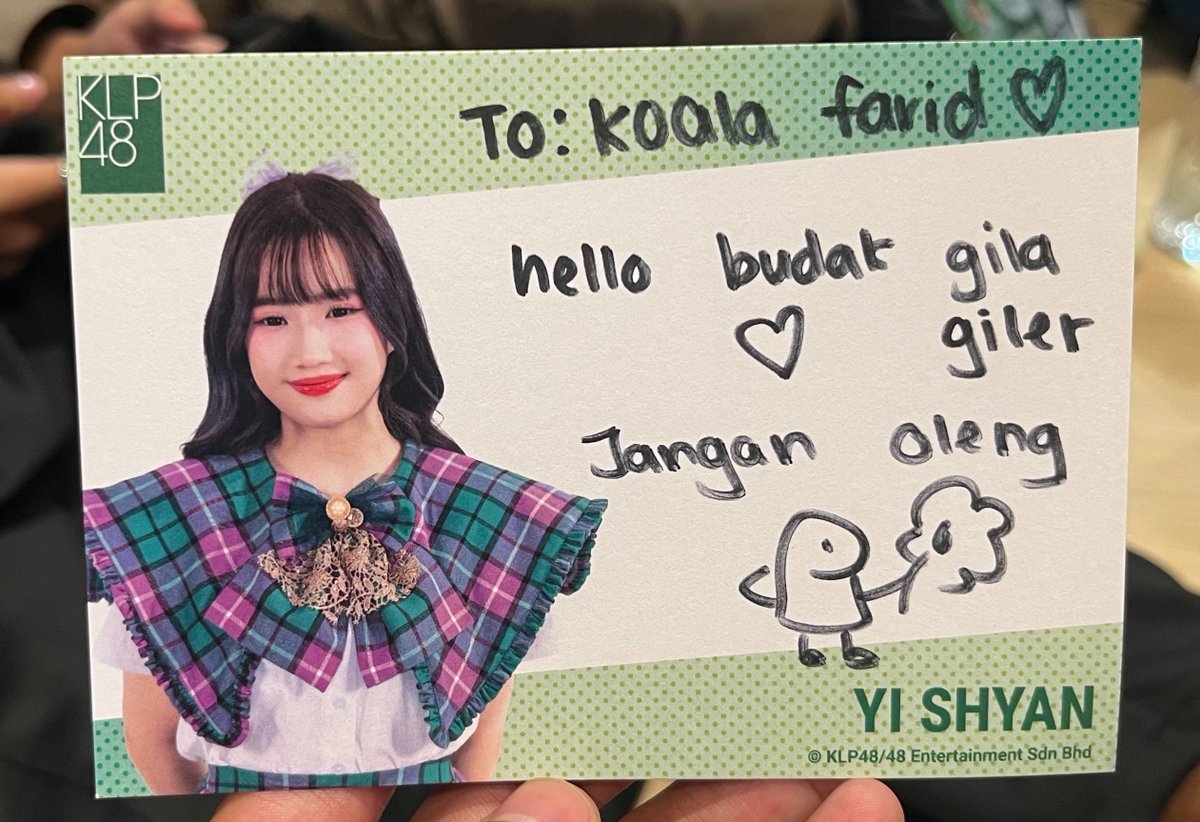 KLP
48
To: koala farid ♡
hello budak gila
♡ giler
Jangan oleng
YI SHYAN
© KLP48/48 Entertainment Sdn Bhd